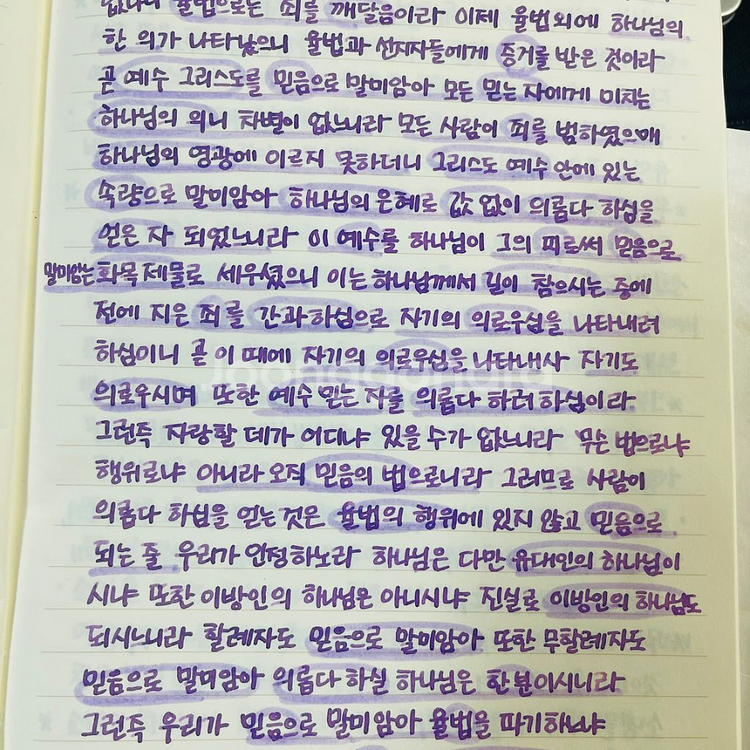 없나니 율법으로는 죄를 깨달음이라 이제 율법외에 하나님의
한 의가 나타났으니 율법과 선지자들에게 증거를 받은 것이라
곧 예수 그리스도를 믿음으로 말미암아 모든 믿는 자에게 미치는
하나님의 의니 차별이 없느니라 모든 사람이 죄를 범하였으매
하나님의 영광에 이르지 못하더니 그리스도 예수 안에 있는
속량으로 말미암아 하나님의 은혜로 값 없이 의롭다 하심을
얻은 자 되었느니라 이 예수를 하나님이 그의 피로써 믿음으로
말미암는 화목제물로 세우셨으니 이는 하나님께서 길이 참으시는 중에
전에 지은 죄를 간과하심으로 자기의 의로우심을 나타내려
하심이니 곧 이 때에 자기의 의로우심을 나타내사 자기도
의로우시며 또한 예수 믿는 자를 의롭다 하려 하심이라
그런즉 자랑할 데가 어디냐 있을 수가 없느니라 무슨 법으로냐
행위로냐 아니라 오직 믿음의 법으로니라 그러므로 사람이
의롭다 하심을 얻는 것은 율법의 행위에 있지 않고 믿음으로
되는 줄 우리가 인정하노라 하나님은 다만 유대인의 하나님이
시냐 또한 이방인의 하나님은 아니시냐 진실로 이방인의 하나님도
되시느니라 할례자도 믿음으로 말미암아 또한 무할례자도
믿음으로 말미암아 의롭다 하실 하나님은 한분이시니라
그런즉 우리가 믿음으로 말미암아 율법을 파기하느냐